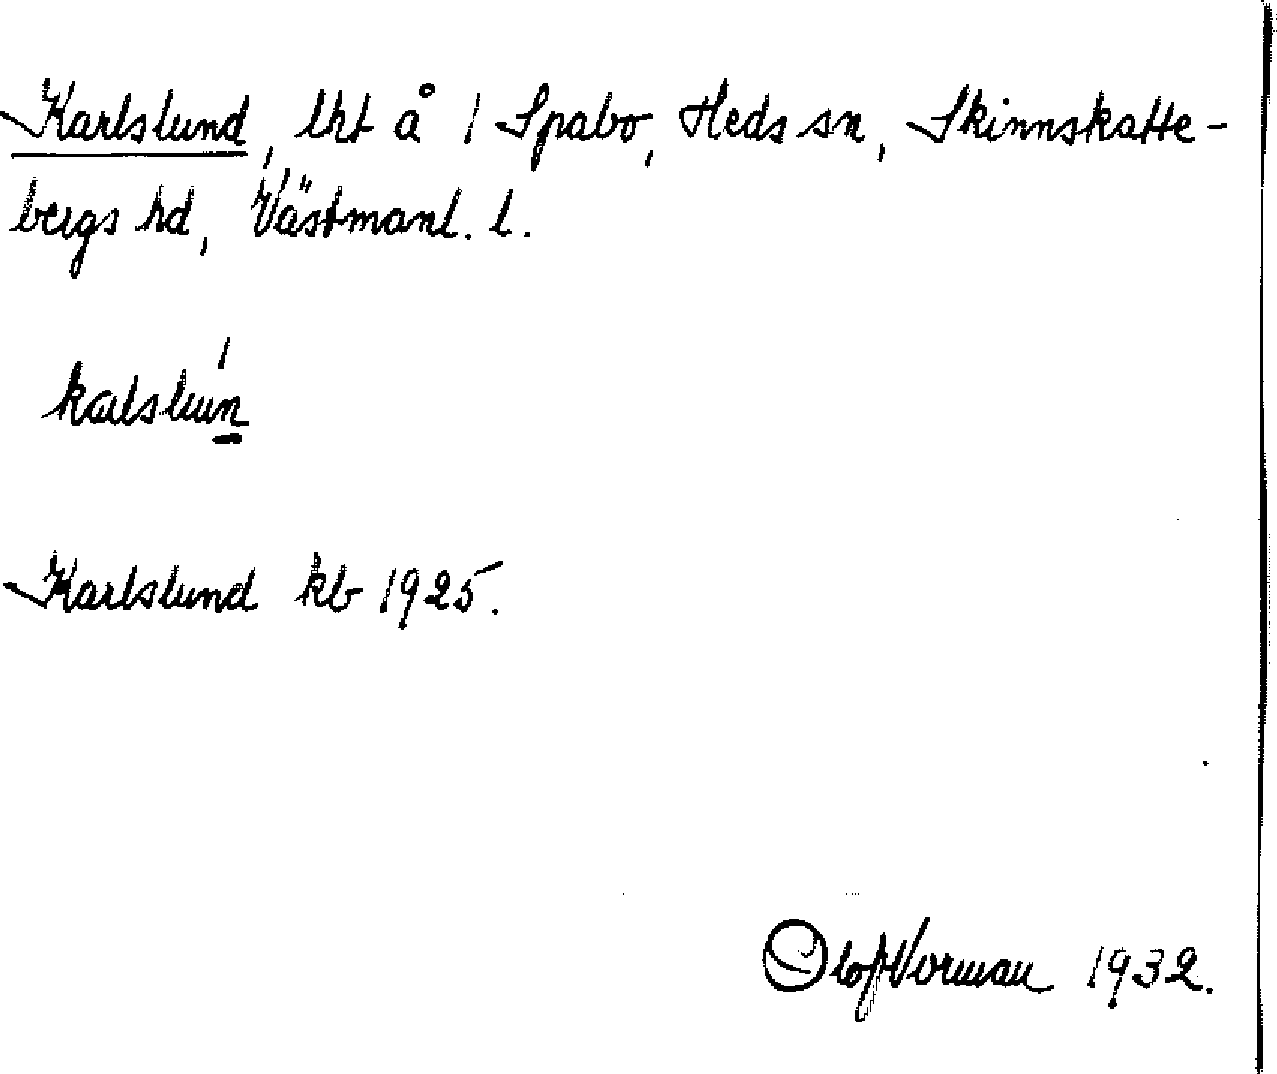 Karlslund, lht å 1 Spabo, Heds sn, Skinnskatte-
bergs hd, Västmanl. l.
kalslún̲
Karlslund kb 1925.
Olof Norman 1932.